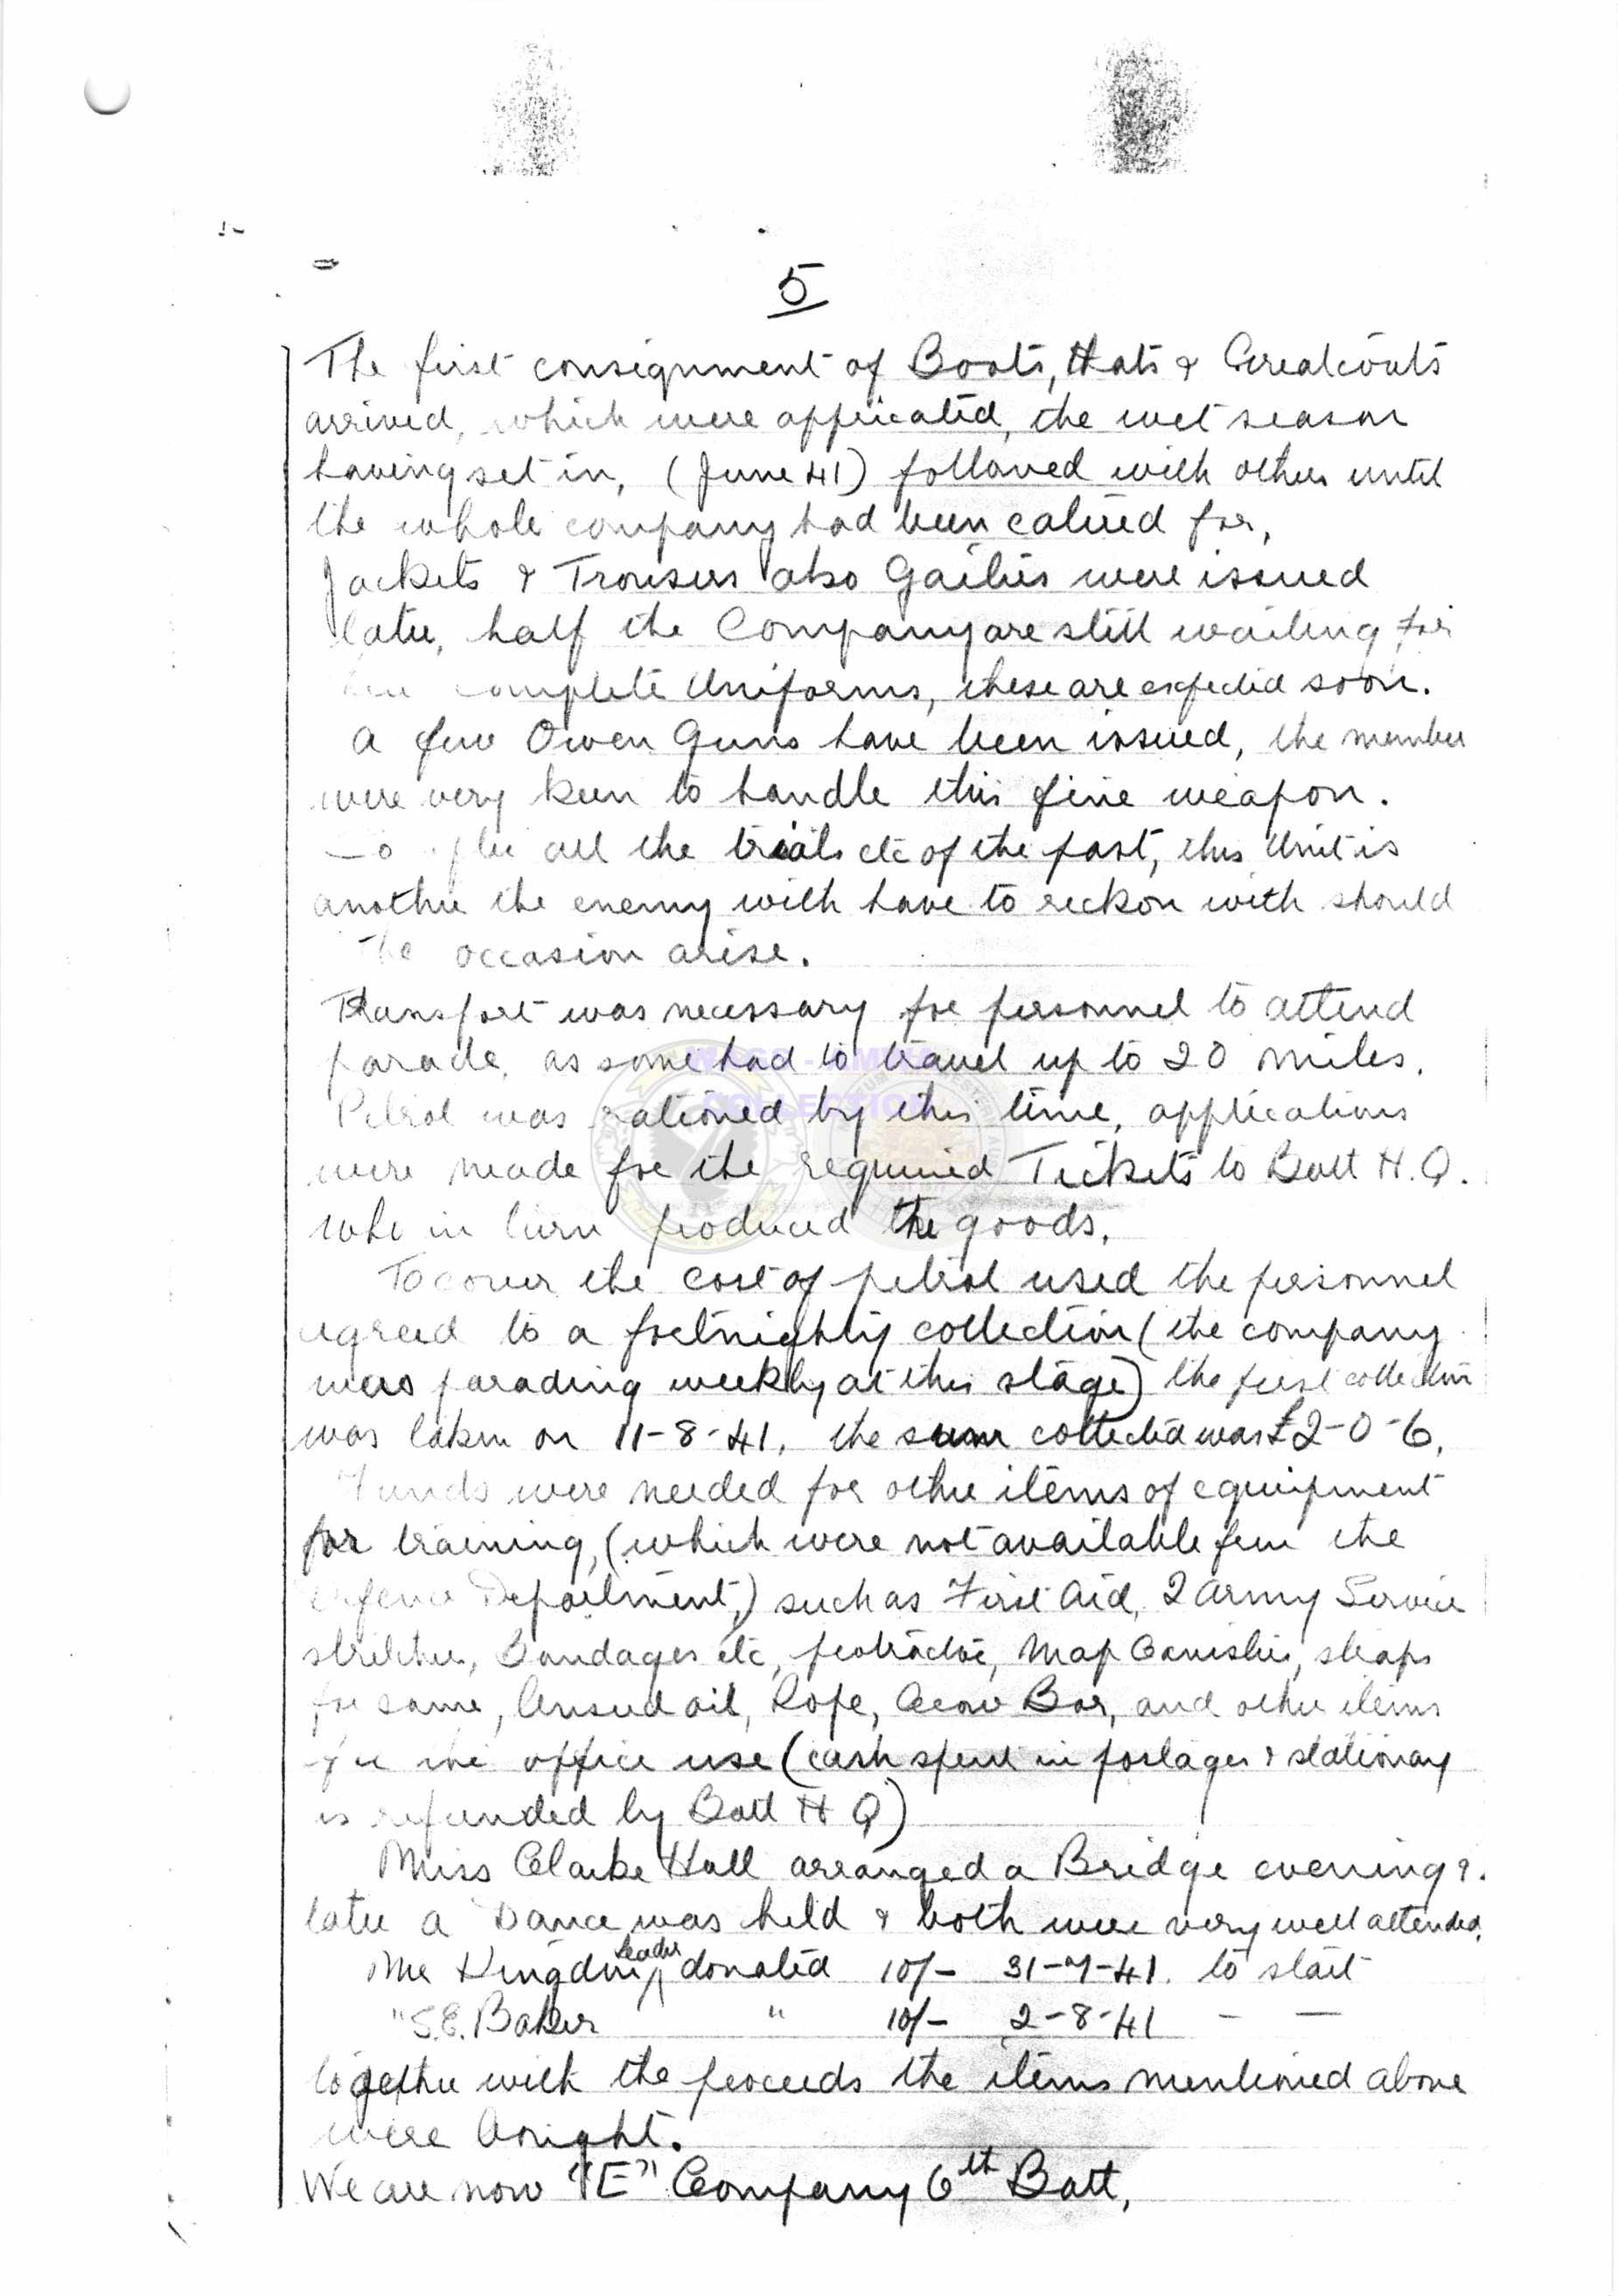 5
The first consignment of Boots, Hats & Greatcoats
arrived, which were appricated, the wet season
having set in, (June 41) followed with others until
the whole company had been catired for,
Jackets & Trousers also Gaiters were issued
later, half the Company are still waiting for
complete Uniforms, these are expected soon.
A few Owen Guns have been issued, the member
were very keen to handle this fine weapon.
So after all the trials etc of the past, this Unit is
another the enemy with have to reckon with should
the occasion arise.
Transport was necessary for personnel to attend
parade, as some had to travel up to 20 miles.
Petrol was rationed by this time, applications
were made for the required Tickets to Batt H.Q.
who in turn produced the goods.
To cover the cost of petrol used the personnel
agreed to a fortnightly collection (the company
was parading weekly at this stage) the first collection
was taken on 11-8-41, the sum collected was £2-0-6.
Funds were needed for other items of equipment
for training, (which were not available from the
Defence Department,) such as First Aid, 2 Army Service
stretcher, Bandages etc, protractor, Map Canister, straps
for same, Linseed oil, Rope, Crow Bar, and other items
for the office use (cash spent in postages & stationary
is refunded by Batt H Q)
Miss Clarke Hall arranged a Bridge evening &
later a Dance was held & both were very well attended.
Mr Kingdon Leader donated 10/- 31-7-41. to start
" S.E. Baker " 10/- 2-8-41 - -
together with the proceeds the items mentioned above
were bought.
We are now "E" Company 6th Batt,
COLLECTION